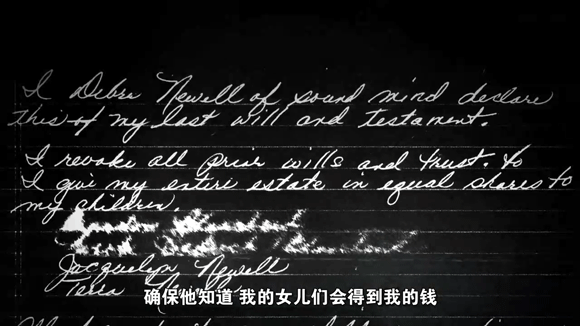 I Debra Newell of sound mind declare
this of my last will and testament.
I revoke all prior wills and trust. to
I give my entire estate in equal shares to
my children.
Jacquelyn Newell
Terra
确保他知道 我的女儿们会得到我的钱